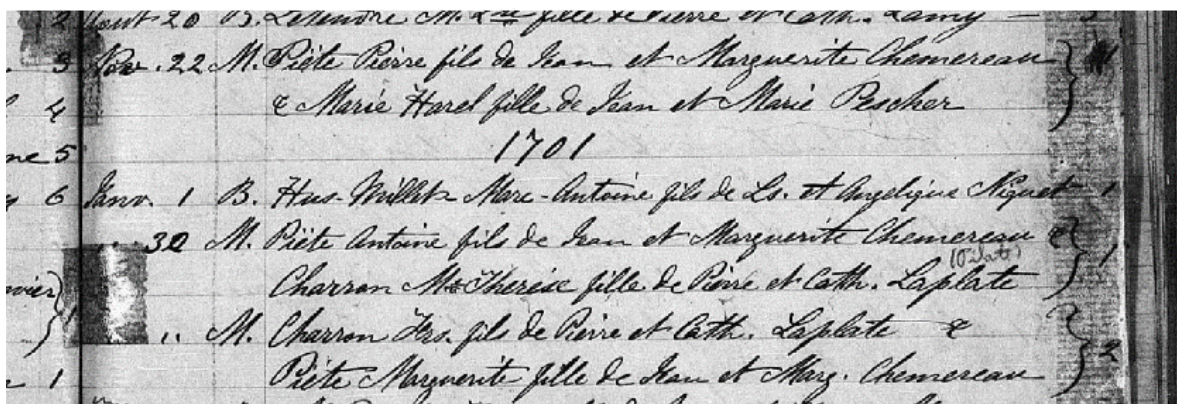 2 Aout 20 B. Letendre M. Lse fille de Pierre et Cath. Lamy — 3
3 Nov. 22 M. Piète Pierre fils de Jean et Marguerite Chemereau
4 & Marie Harel fille de Jean et Marie Pescher
ne 5 1701
6 Janv. 1 B. Hus-Millet Marc-Antoine fils de Ls. et Angelique Niquet 1
30 M. Piète Antoine fils de Jean et Marguerite Chemereau &
(Pilate)
vier Charron M. Therèse fille de Pierre et Cath. Laplate 1
" M. Charron Frs. fils de Pierre et Cath. Laplate &
1 Piète Marguerite fille de Jean et Marg. Chemereau 2